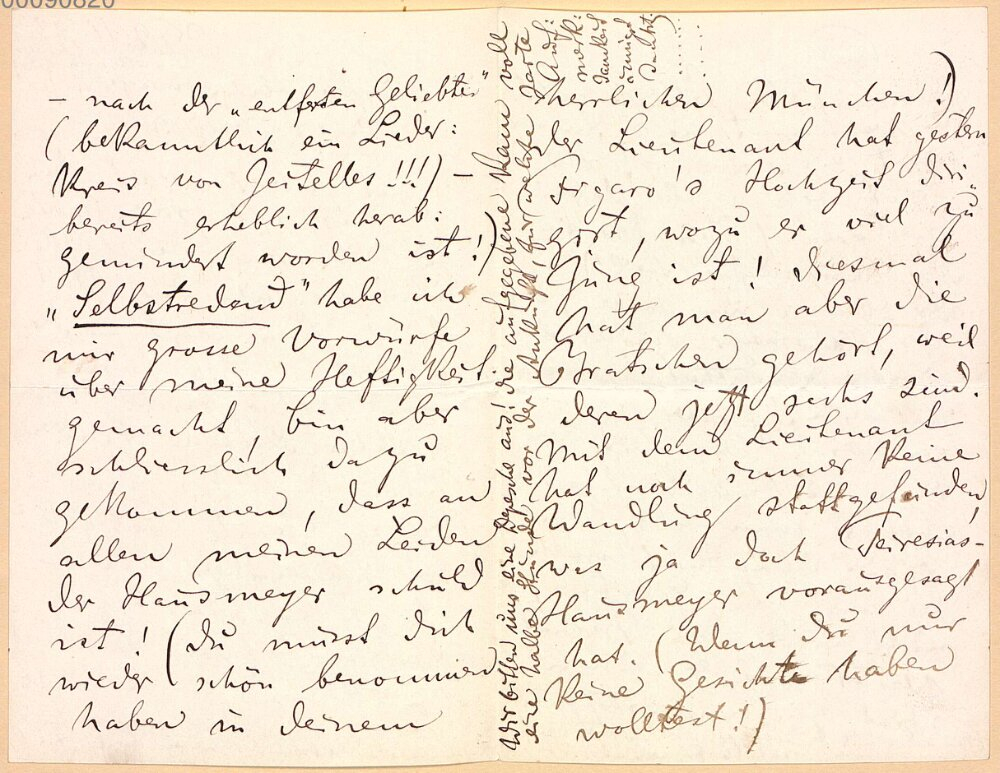 00090820
– nach der „entfernten Geliebten"
(bekanntlich ein Lieder:
Kreis von Jeitelles!!!) –
bereits erheblich herab:
gemindert worden ist!)
„Selbstredend" habe ich
mir grosse Vorwürfe
über meine Heftigkeit
gemacht, bin aber
schliesslich dazu
gekommen, dass an
allen meinen Leiden
der Hausmeyer schuld
ist! (Du musst dich
wieder schön benommen
haben in deinem
herrlichen München!)
der Lieutenant hat gestern
Figaro's Hochzeit diri„
girt, wozu er viel zu
jung ist! diesmal
hat man aber die
Bratschen gehört, weil
deren jetzt sechs sind.
Mit dem Lieutenant
hat noch immer keine
Wandlung stattgefunden,
was ja doch Teiresias–
Hausmeyer vorausgesagt
hat. (Wenn du nur
keine Gesichte haben
wolltest!)
Wir bitten uns eine Depesche aus! die aufgegebene kam voll
eine halbe Stunde vor der Ankunft, für welche zarte
Auf:
merk:
samkeit
innigst
dankt: